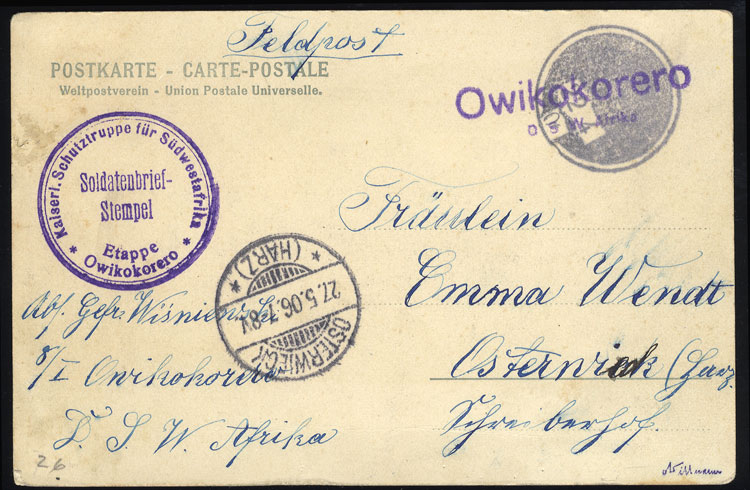 Feldpost
POSTKARTE - CARTE-POSTALE
Weltpostverein - Union Postale Universelle.
Owikokorero
Afrika
Kaiserl. Schutztruppe für Südwestafrika
Soldatenbrief-
Stempel
Etappe
Owikokorero
Fräulein
Emma Wendt
Osterwieck (Harz
Schreiberhof.
OSTERWIECK
27.5.06.7-8V.
(HARZ)
Abs. Gefr. Wisniewski
8/I Owikokorero
D. S. W. Afrika
26